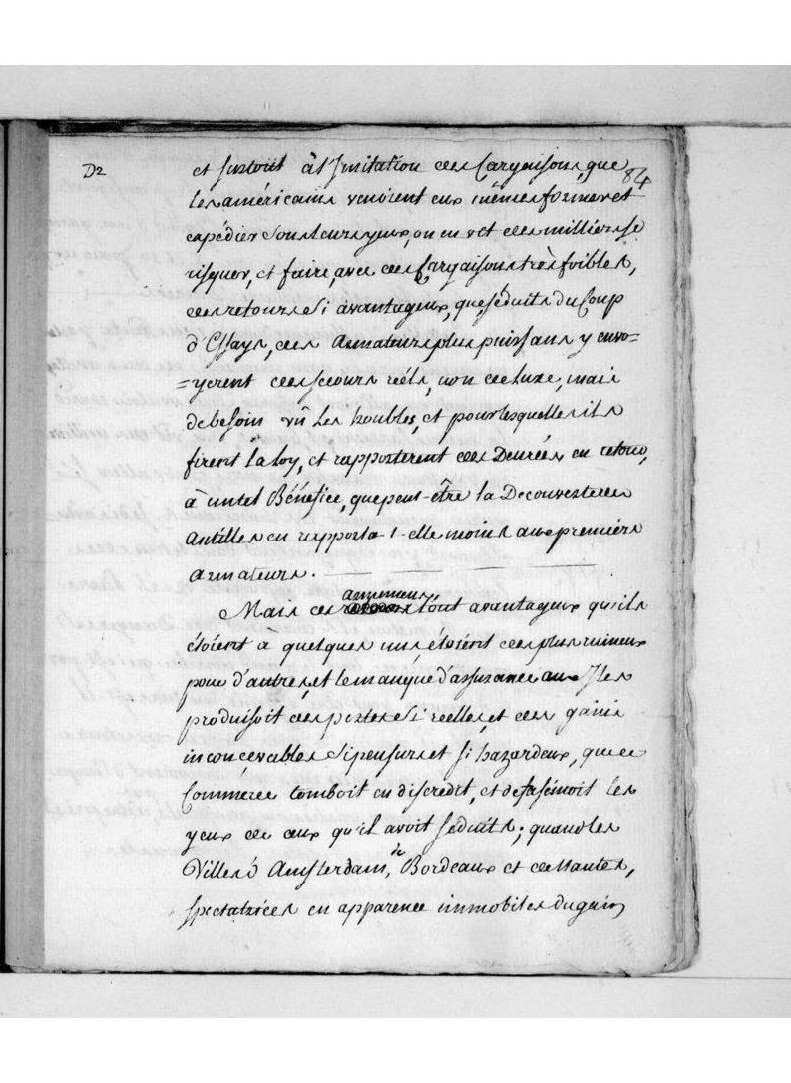 D2
84
et surtout à l'Imitation des Cargaisons, que
les américains venoient eux mêmes former et
expédier sous leurs yeux, on en vit des milliers se
risquer, et faire, avec des Cargaisons très foibles,
des retours si avantageux, que, séduits du Coup
d'Essays, des Armateurs plus puissans y envo=
=yerent des secours réels, non de luxe, mais
de besoin vû les troubles, et pour lesquelles ils
firent la loy, et rapporterent des Denrées en retour,
à un tel Bénéfice, que peut-être la Decouverte des
antilles en rapporta-t-elle moins aux premiers
armateurs.
armemens
Mais ces tout avantageux qu'ils
étoient à quelques uns étoient des plus ruineux
pour d'autres, et le manque d'assurance aux Isles
produisoit des pertes si reelles, et des gains
inconcevables si peu surs et si hazardeux, que ce
Commerce tomboit en discredit, et desasinoit les
yeux de ceux qu'il avoit séduits; quand les
Villes d'Amsterdam, de Bordeaux et de Nantes,
spectatrices en apparence immobiles du gain